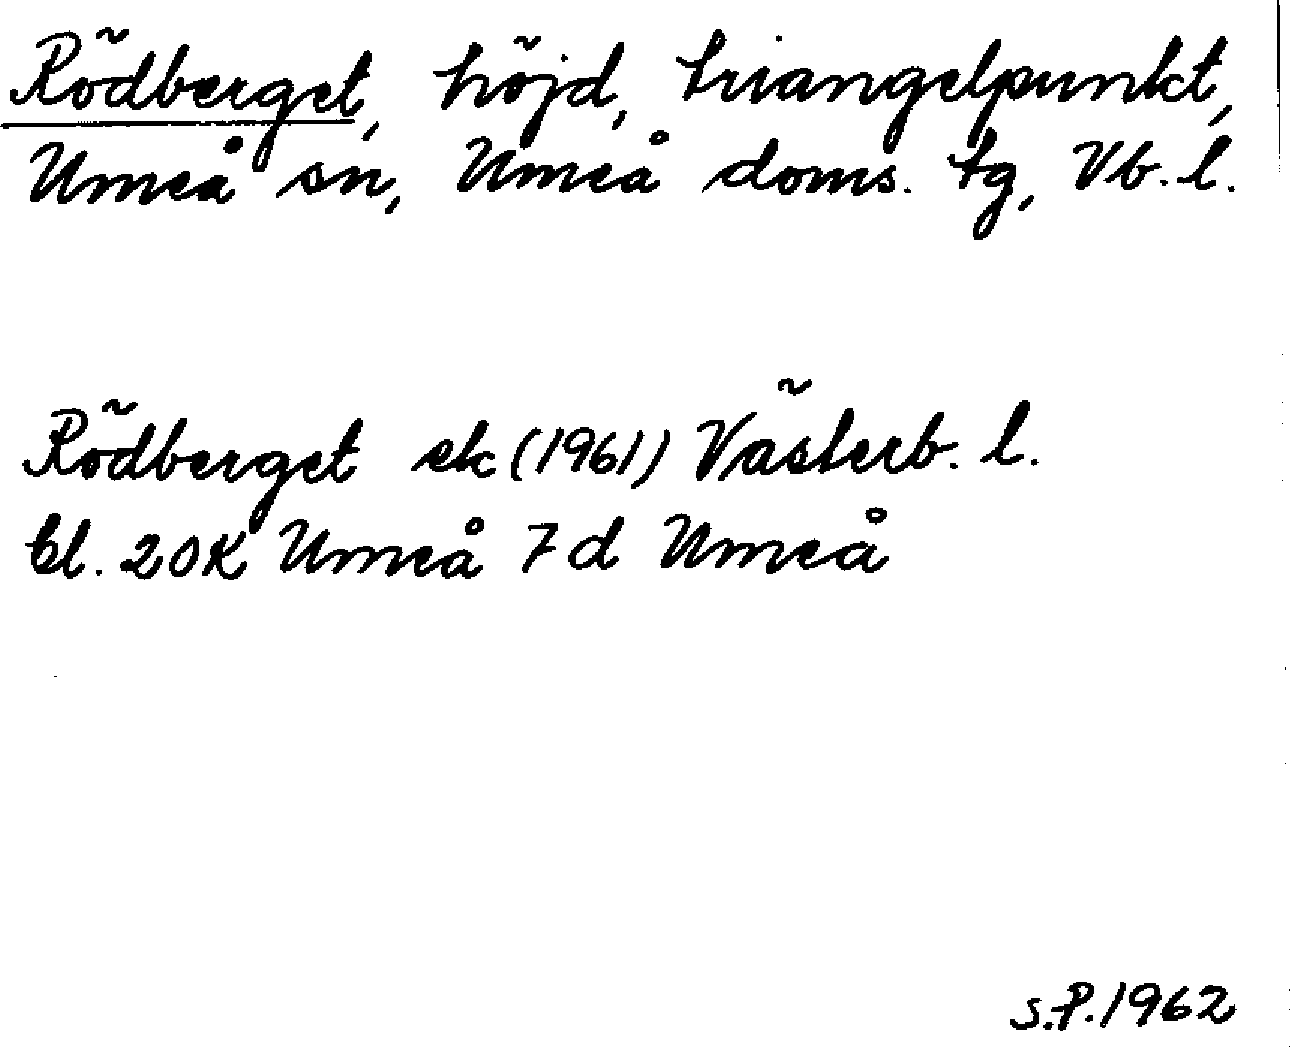 Rödberget, höjd, triangelpunkt,
Umeå sn, Umeå doms. tg, Vb. l.
Rödberget ek (1961) Västerb. l.
bl. 20K Umeå 7d Umeå
S.P. 1962